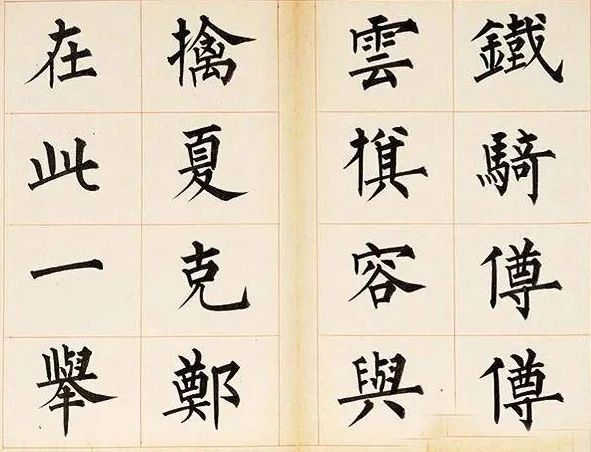 鐵騎僔僔
雲旗容與
擒夏克鄭
在此一舉